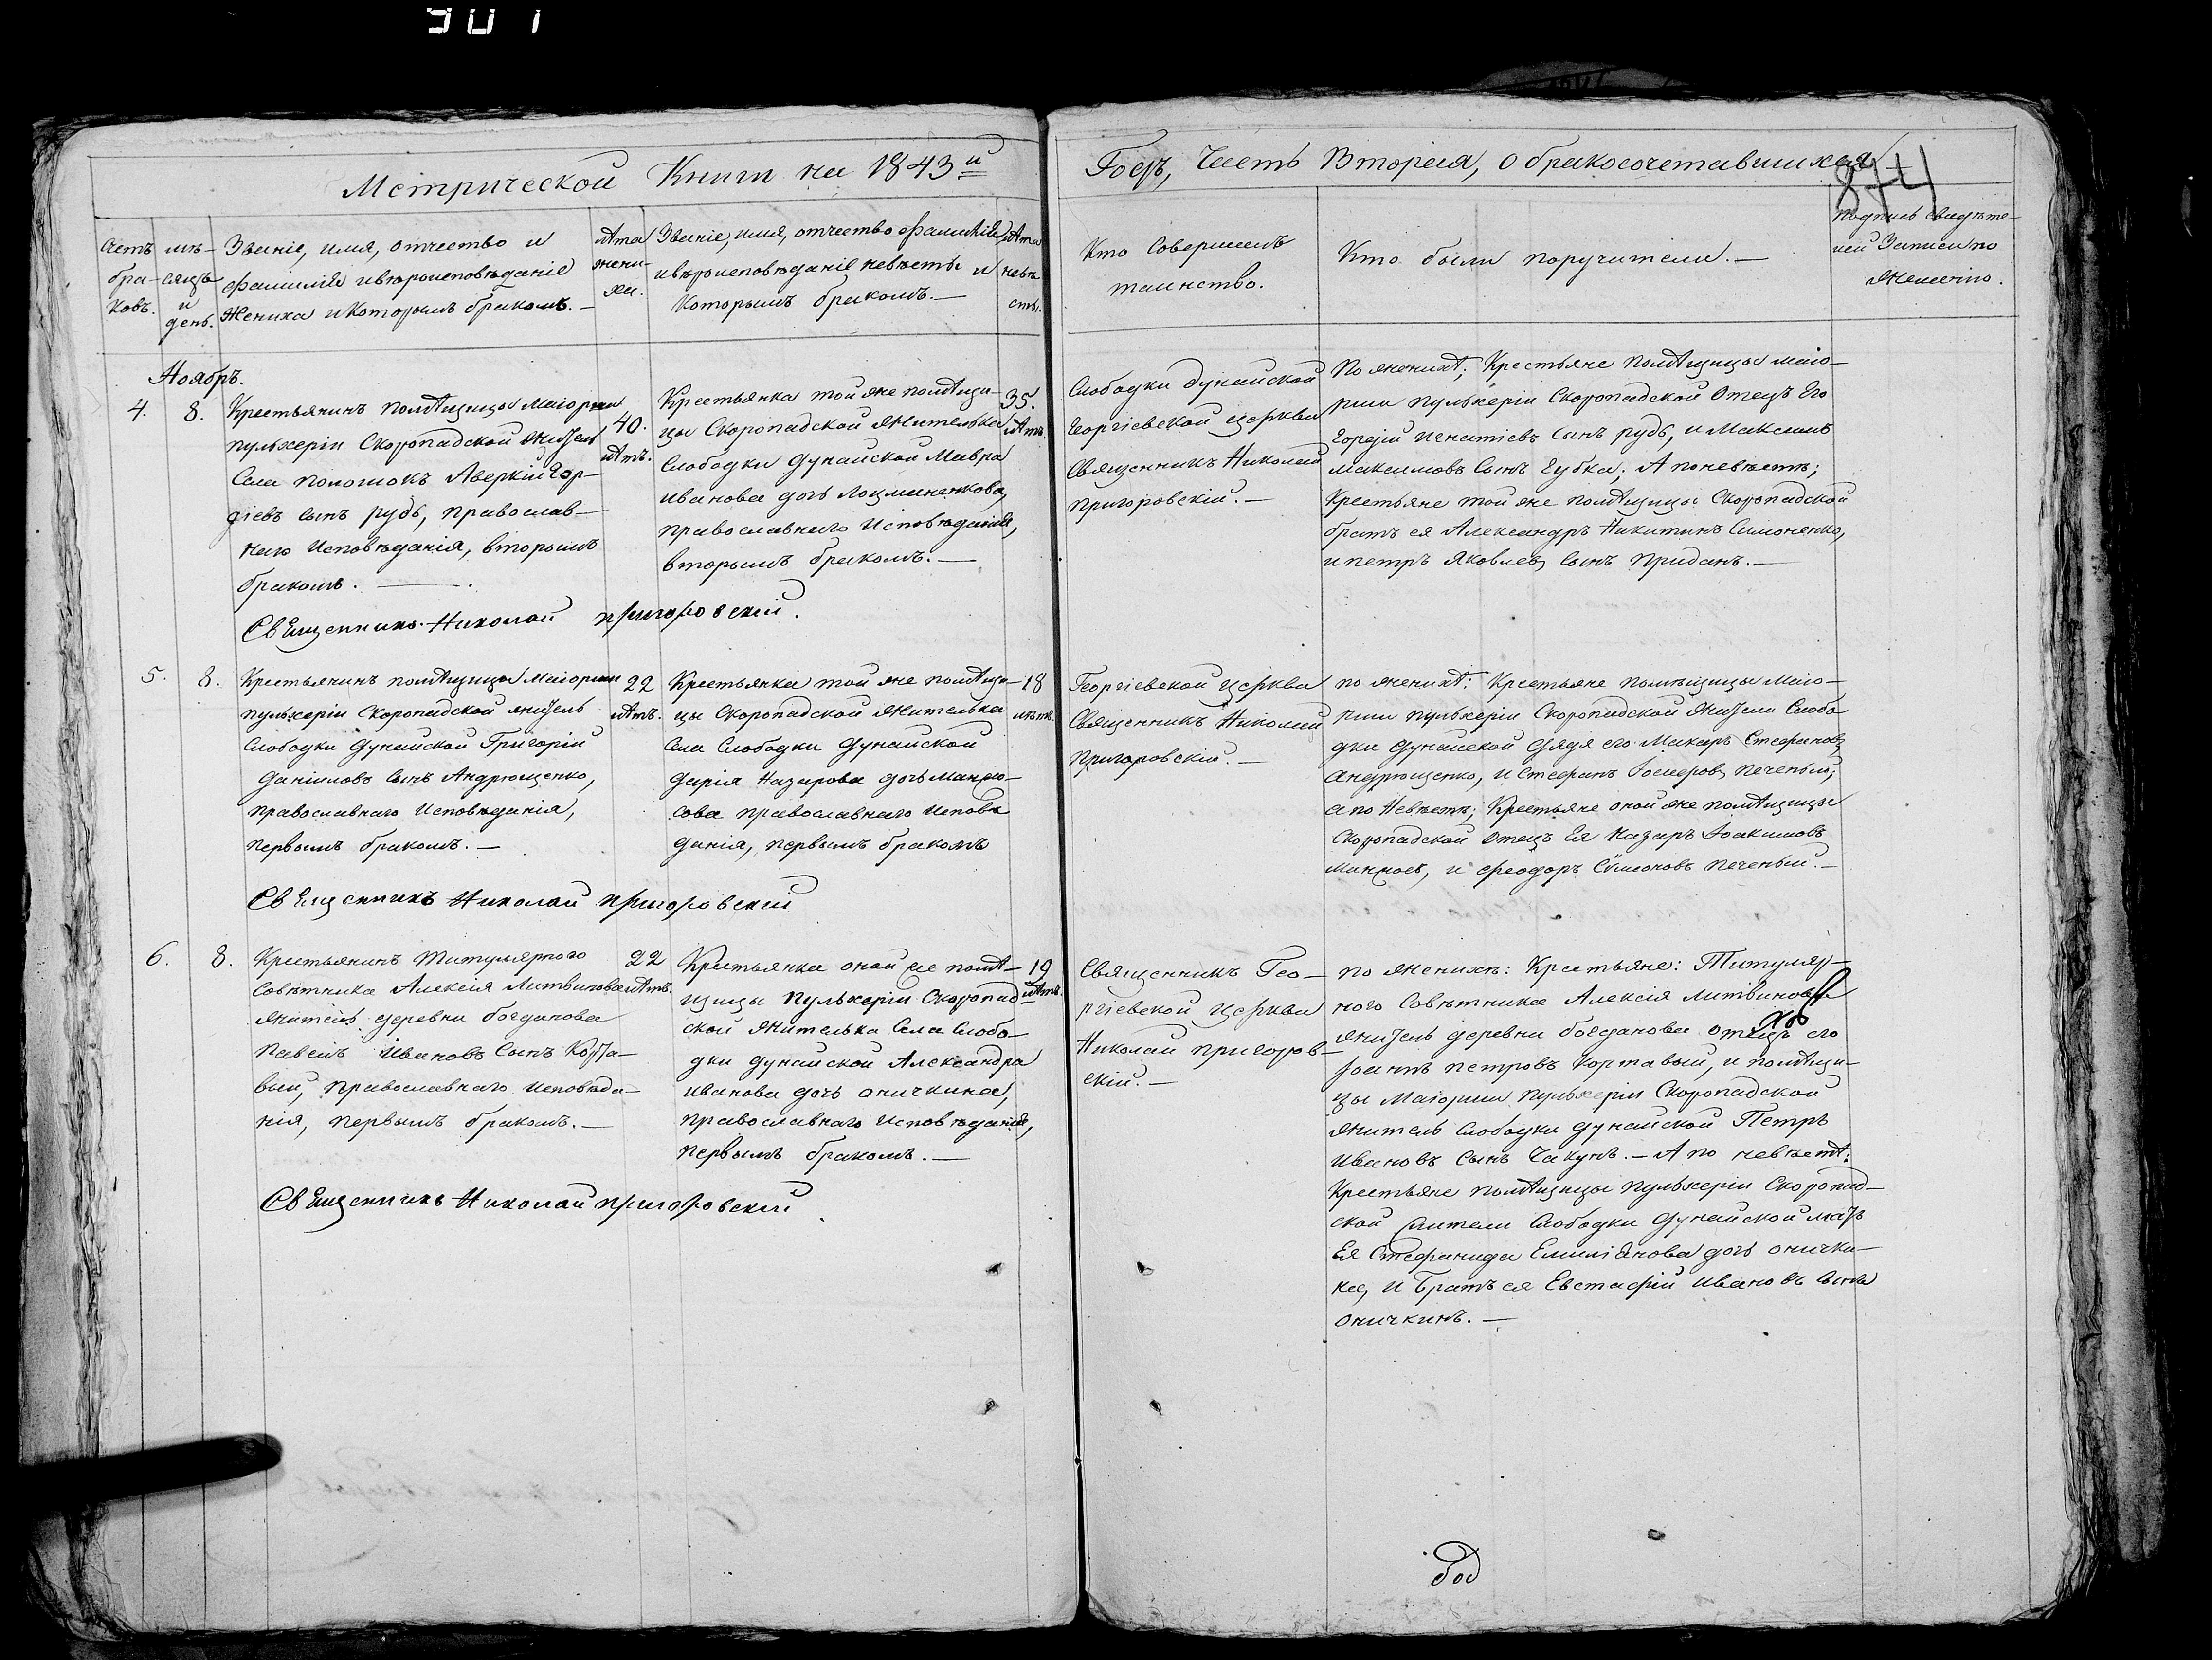 301
Метрической Книги на 1843й
Годъ, Часть Вторая, о бракосочетавшихся
874
Счетъ браковъ.
мѣсяцъ и день.
Званіе, имя, отчество и
фамилія и вѣроисповѣданіе
Жениха и Которымъ бракомъ. —
лѣта
жени-
ха.
Званіе, имя, отчество фамилія
и вѣроисповѣданіе невѣсты и
Которымъ бракомъ. —
лѣта
невѣ
сты.
Кто Совершалъ
таинство.
Кто были поручители. —
подпись свидѣте-
лей Записи по
Желанію.
Ноябръ.
4.
8.
Крестьянинъ помѣщицы Маіорши
пульхеріи Скоропадской житель
Села полошокъ Аверкій Гор-
діевъ сынъ рудь, православ-
наго Исповѣданія, вторымъ
бракомъ. —
40.
лѣтъ.
Крестьянка той же помѣщи-
цы Скоропадской жителька
Слободки дунайской Мавра
иванова дочь Лоцманенкова,
православнаго Исповѣданія,
вторымъ бракомъ. —
35.
лѣтъ.
Слободки дунайской
Георгіевской церкви
Священникъ Николай
Пригоровскій. —
По женихѣ; Крестьяне помѣщицы маіо-
рши пульхеріи Скоропадской Отецъ Его
Гордій игнатіевъ сынъ рудь, и Максимъ
максимовъ Сынъ Губка; А по невѣстѣ;
Крестьяне той же помѣщицы Скоропадской
братъ ея Александръ Никитинъ Симоненко,
и петръ Яковлевъ сынъ Приданъ. —
Священникъ Николай Пригоровскій.
5.
8.
Крестьянинъ помѣщицы Маіорши
пульхеріи Скоропадской житель
Слободки дунайской Григорій
даніиловъ сынъ Андрющенко,
православнаго Исповѣданія,
первымъ бракомъ. —
22
лѣтъ.
Крестьянка той же помѣщи-
цы Скоропадской жителька
Села Слободки Дунайской
Дарія Назарова дочь
православнаго Исповѣ
данія, первымъ бракомъ
18
лѣтъ.
Георгіевской церкви
Священникъ Николай
Пригоровскій. —
по женихѣ: Крестьяне помѣщицы маіо-
рши пульхеріи Скоропадской жители Слобо
дки дунайской дядя его Макаръ Стефановъ
андрющенко, и Стефанъ Іосифовъ печеный;
а по Невѣстѣ; Крестьяне оной же помѣщицы
Скоропадской Отецъ Ея Назаръ Іоакимовъ
и феодоръ Сѵмеоновъ печеный. —
Священникъ Николай Пригоровскій
6.
8.
Крестьянинъ Титулярного
Совѣтника Алексія Литвинова
житель деревни богданова
Павелъ Ивановъ Сынъ Корта-
вый, православнаго исповѣда-
нія, первымъ бракомъ. —
22
лѣтъ.
Крестьянка оной же помѣ-
щицы Пульхеріи Скоропад-
ской жителька Села Слобо-
дки дунайской Александра
иванова дочь оничкина,
православнаго исповѣданія,
первымъ бракомъ. —
19
лѣтъ.
Священникъ Гео-
ргіевской церкви
Николай пригоров-
скій. —
по женихѣ: Крестьяне: Титуляр-
ного Совѣтника Алексія Литвинова
житель деревни богданова отецъ его
Іоаннъ петровъ Кортавый, и помѣщи-
цы Маіорши пульхеріи Скоропадской
житель Слободки дунайской Петръ
Ивановъ Сынъ Чакунъ. — А по невѣстѣ:
Крестьяне помѣщицы пульхеріи Скоропад-
ской жители Слободки дунайской мать
Ея Стефанида Емиліянова дочь онички-
на, и Братъ ея Евстафій Ивановъ Сынъ
оничкинъ. —
Священникъ Николай Пригоровскій